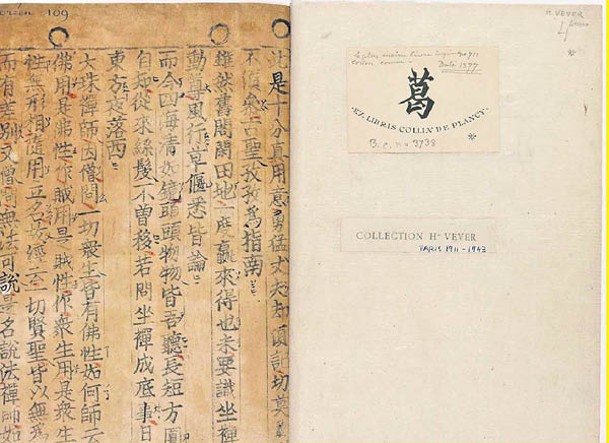 oréen 109
此是十分真用意勇猛丈夫却須記切莫
不須參古聖孜孜為指南
雖然舊閣閑田地一度贏來得也未要識坐禪
動尊風行草偃悉皆論
而今四海清如鏡頭頭物物皆吾聽長短方圓
自知從來絲髮不曾移若問坐禪成底事日
東方夜落西
大珠禪師因僧問一切衆生皆有佛性如何師云
佛用是佛性作賊用是賊性作衆生用是衆生
性無形相隨用立名故經云一切賢聖皆以無為
而有差別又僧問無法可說是名說法禪師如
H. VEVER
le plus ancien livre imprimé
Date 1377
葛
EX LIBRIS COLLIN DE PLANCY
3738
COLLECTION Hi VEVER
PARIS 1911-1943